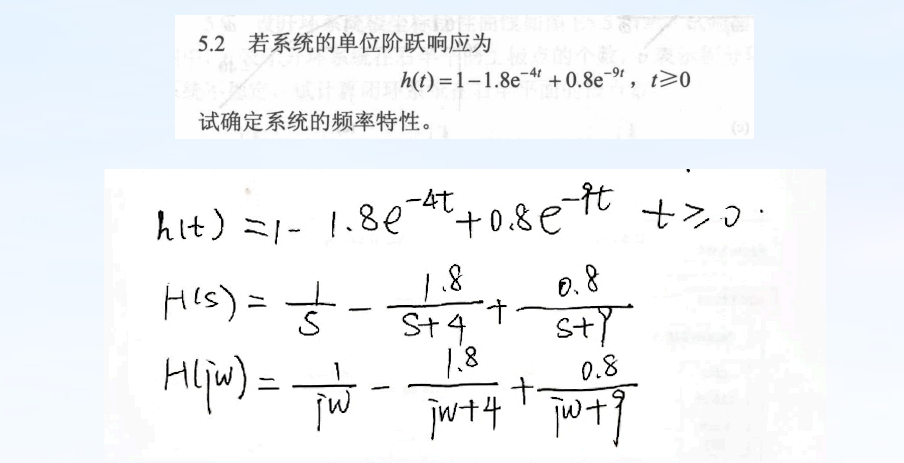 5.2 若系统的单位阶跃响应为
h(t)=1−1.8e^{-4t}+0.8e^{-9t}，t≥0
试确定系统的频率特性。
h(t) = 1 - 1.8e^{-4t} + 0.8e^{-9t} t ≥ 0.
H(s) = 1/S - 1.8/(S+4) + 0.8/(S+9)
H(jw) = 1/jw - 1.8/(jw+4) + 0.8/(jw+9)